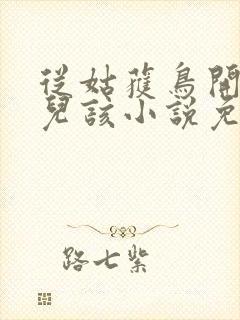 從姑獲鳥開
兒該小說免
路七紫